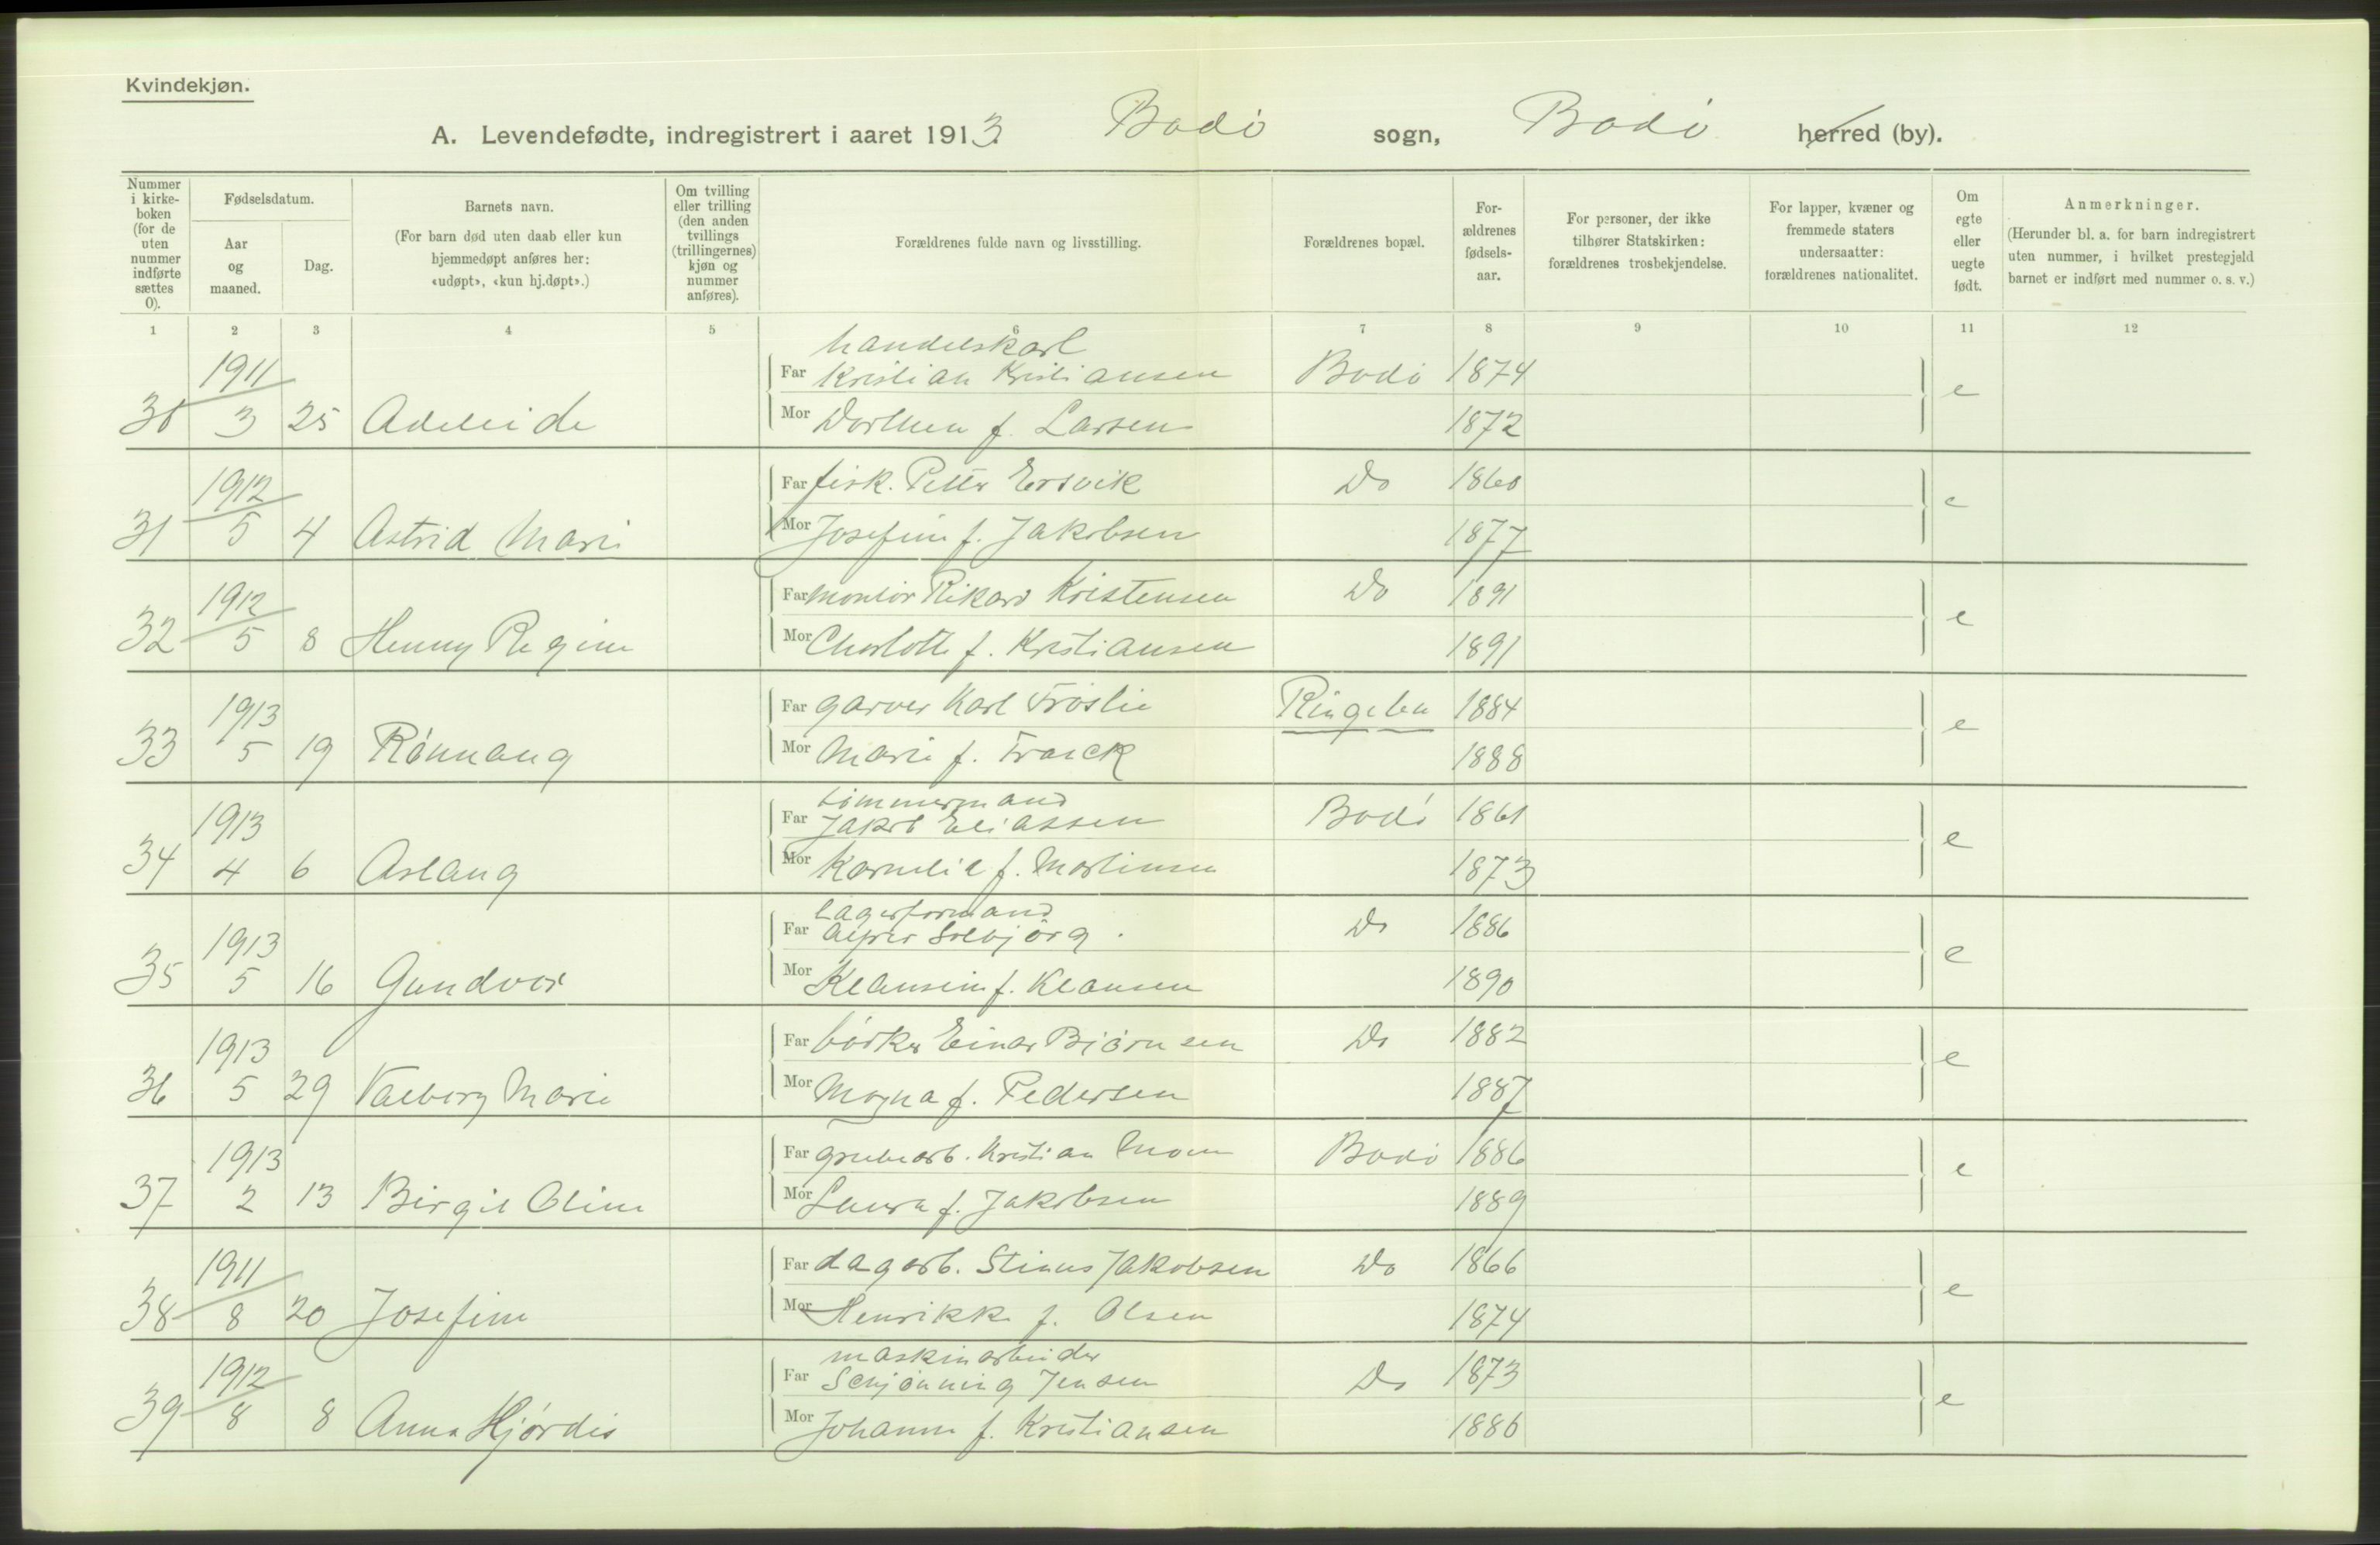 Kvindekjøn.
A. Levendefødte, indregistrert i aaret 1913. Bodø sogn, Bodø herred (by).
Nummer i kirke-boken (for de uten nummer indførte sættes 0).
Fødselsdatum.
Aar og maaned.
Dag.
Barnets navn.
(For barn død uten daab eller kun hjemmedøpt anføres her: «udøpt», «kun hj.døpt».)
Om tvilling eller trilling (den anden tvillings (trillingernes) kjøn og nummer anføres).
Forældrenes fulde navn og livsstilling.
Forældrenes bopæl.
For-ældrenes fødsels-aar.
For personer, der ikke tilhører Statskirken: forældrenes trosbekjendelse.
For lapper, kvæner og fremmede staters undersaatter: forældrenes nationalitet.
Om egte eller uegte født.
Anmerkninger.
(Herunder bl. a. for barn indregistrert uten nummer, i hvilket prestegjeld barnet er indført med nummer o. s. v.)
1 2 3 4 5 6 7 8 9 10 11 12
handelskarl
1911 Far Kristian Kristiansen Bodø 1874 e
30 3 25 Adeleide Mor Dorthea f. Larsen 1872
1912 Far fisk. Petter Ersvik Do 1860 e
31 5 4 Astrid Marie Mor Josefine f. Jakobsen 1877
1912 Far montør Rikard Kristensen Do 1891 e
32 5 8 Henny Regine Mor Charlotte f. Kristiansen 1891
1913 Far garver Karl Frøslie Ringebu 1884 e
33 5 19 Rønnaug Mor Marie f. Franck 1888
tømmermand
1913 Far Jakob Eliassen Bodø 1861 e
34 4 6 Aslaug Mor Kornelie f. Martinsen 1873
lagerformand
1913 Far Alfred Solbjørg. Do 1886 e
35 5 16 Gundvor Mor Klausine f. Klausen 1890
1913 Far bødker Einar Bjørnsen Do 1882 e
36 5 29 Valborg Marie Mor Magna f. Pedersen 1887
1913 Far grubearb. Kristian Moen Bodø 1886 e
37 2 13 Birgit Oline Mor Laura f. Jakobsen 1889
1911 Far dagarb. Stinus Jakobsen Do 1866 e
38 8 20 Josefine Mor Henrikke f. Olsen 1874
maskinarbeider
1912 Far Schjønning Jensen Do 1873 e
39 8 8 Anna Hjørdis Mor Johanne f. Kristiansen 1886